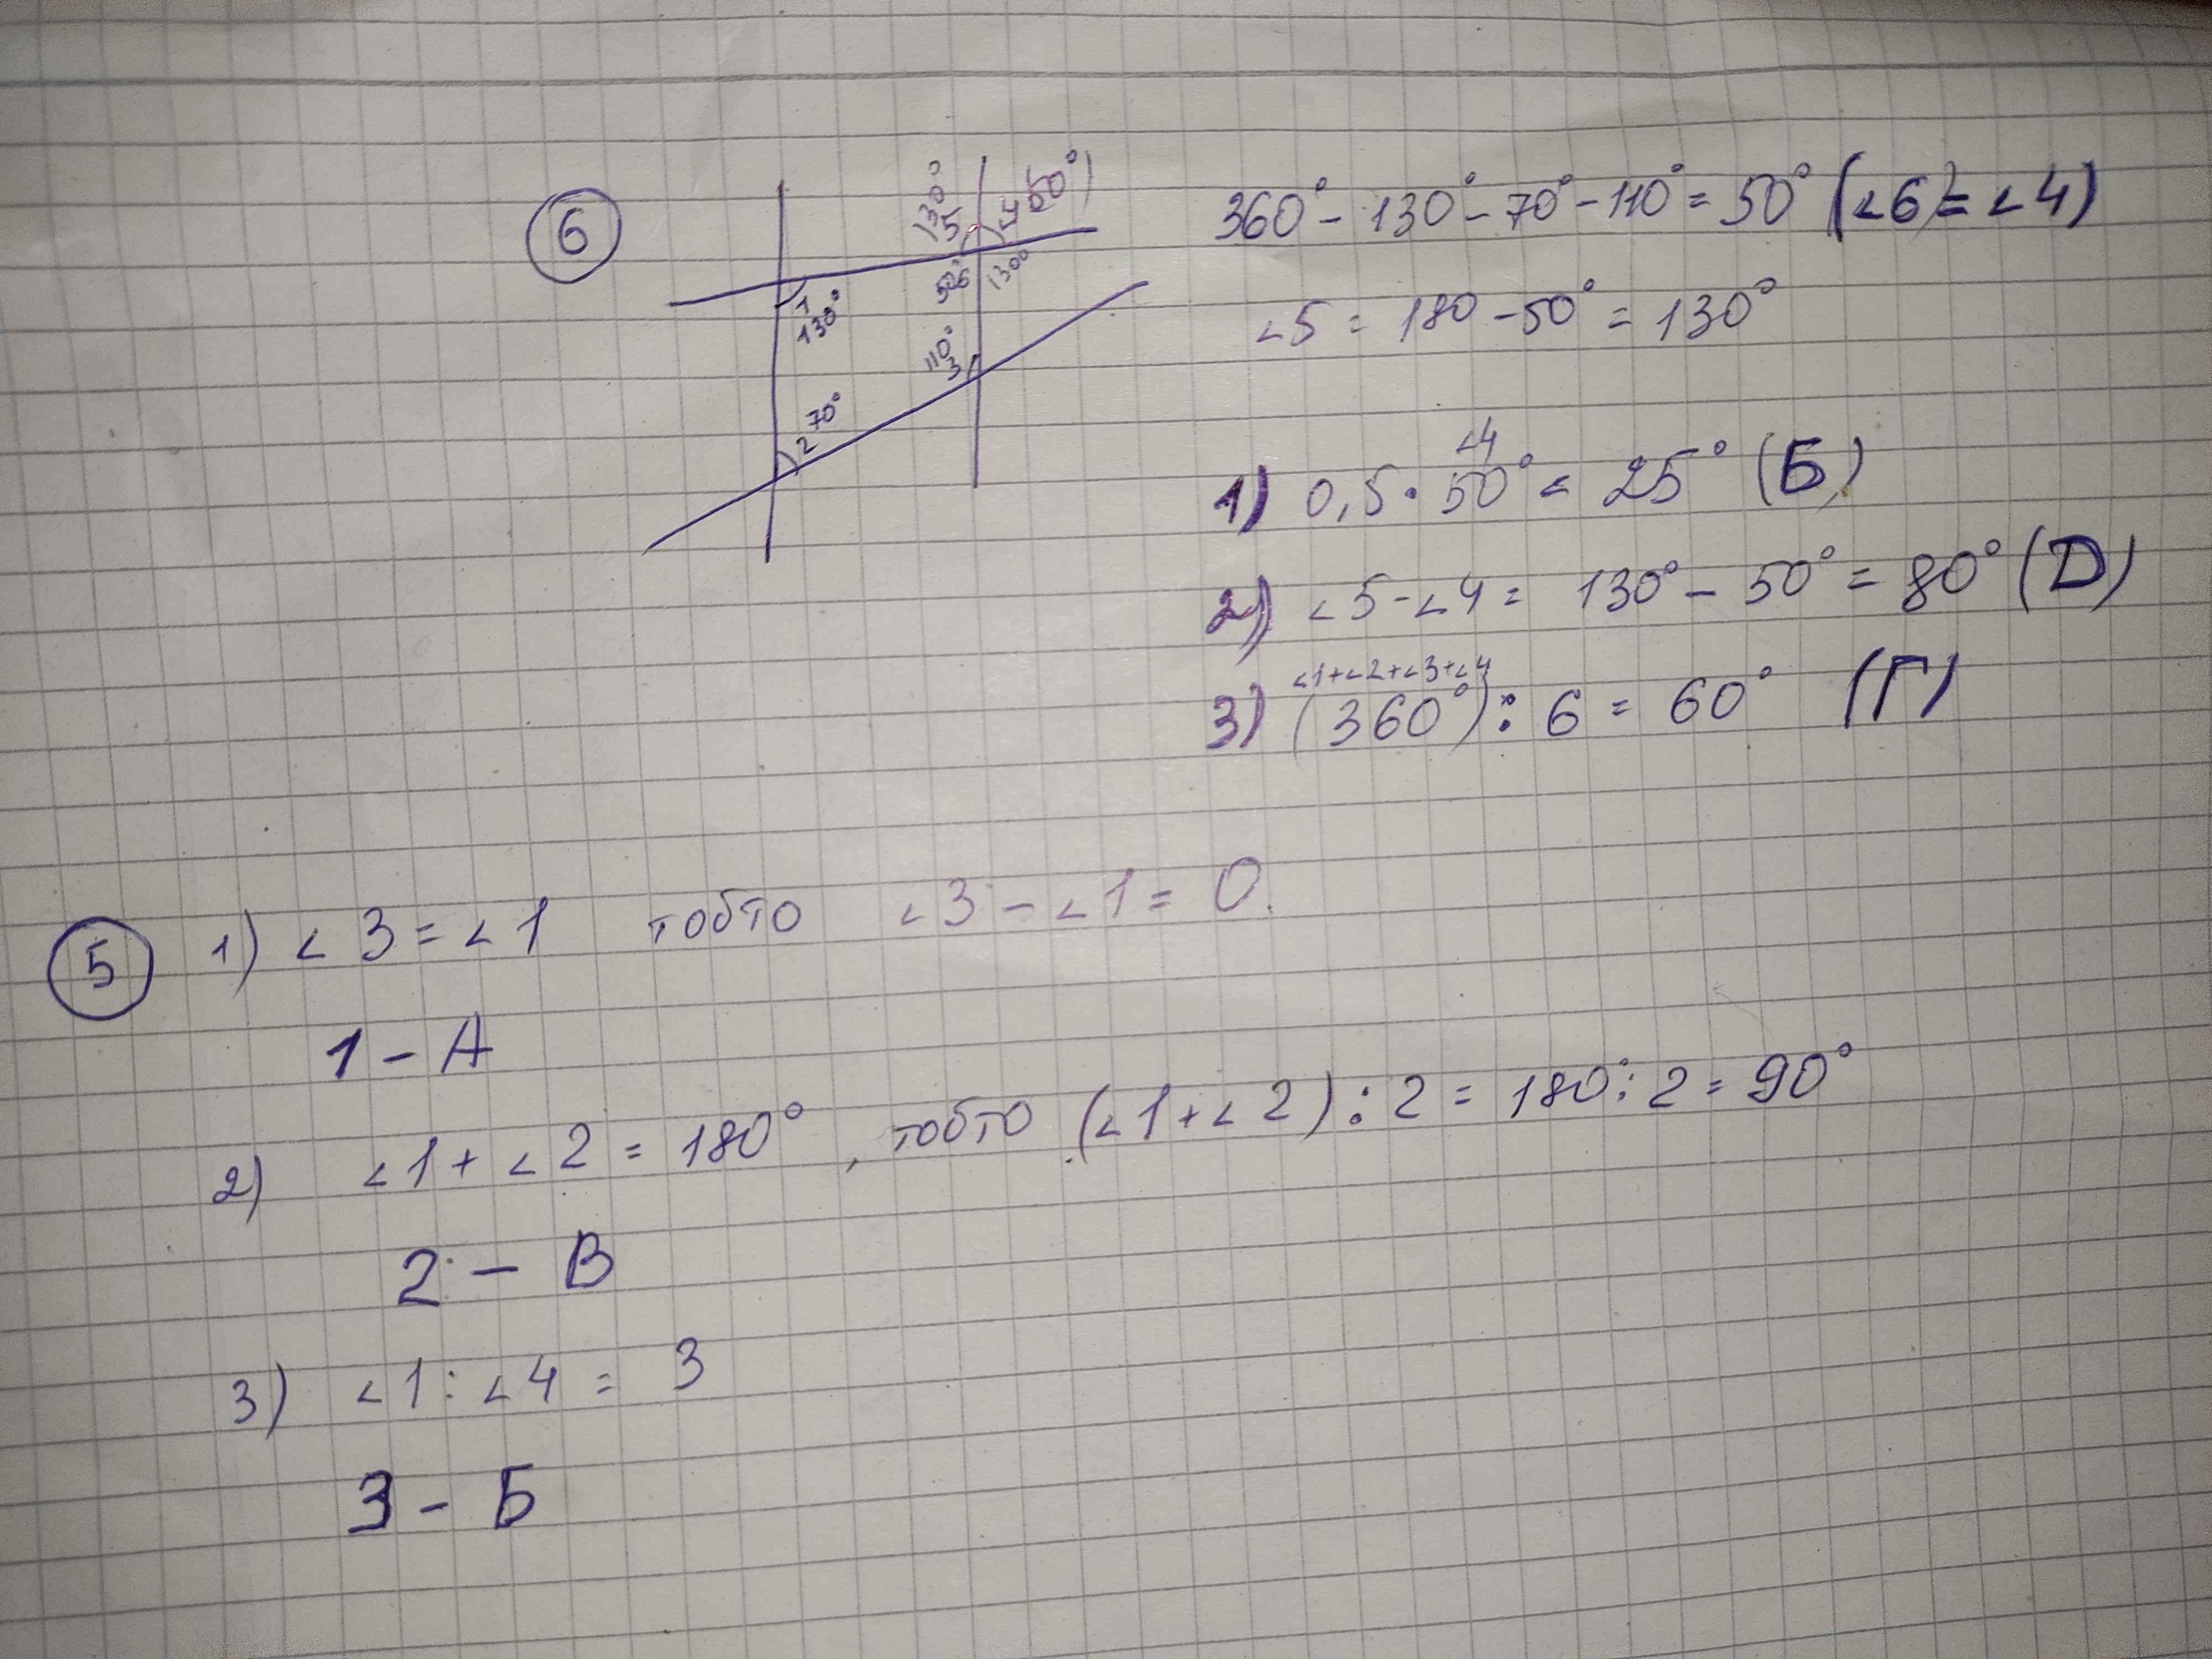 6
130°
5
∠4
(50°)
50°6
130°
1
130°
110°
3
70°
2
360° - 130° - 70° - 110° = 50° (∠6 = ∠4)
∠5 = 180 - 50° = 130°
∠4
1) 0,5 · 50° = 25° (Б)
2) ∠5 - ∠4 = 130° - 50° = 80° (D)
∠1+∠2+∠3+∠4
3) (360°) : 6 = 60° (Г)
5
1) ∠3 = ∠1 тобто ∠3 - ∠1 = 0.
1 - А
2) ∠1 + ∠2 = 180°, тобто (∠1 + ∠2) : 2 = 180° : 2 = 90°
2 - В
3) ∠1 : ∠4 = 3
3 - Б